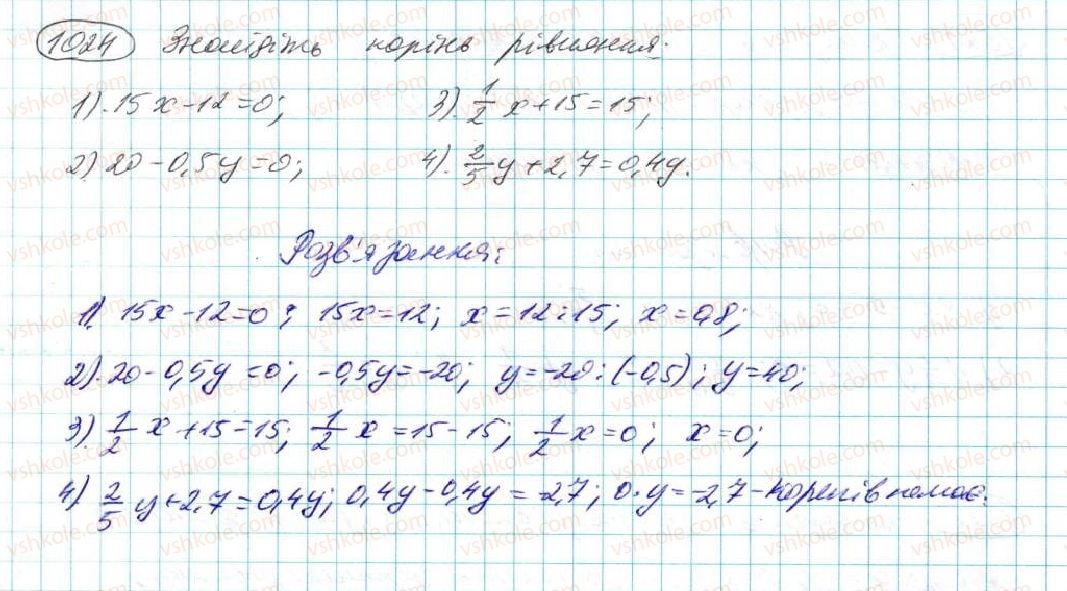 1024 Знайдіть корінь рівняння:
1). 15x-12=0; 3). 1/2 x+15=15;
2) 20-0,5y=0; 4). 2/5 y+2,7=0,4y.
Розв'язання:
1). 15x-12=0; 15x=12; x=12:15; x=0,8;
2). 20-0,5y=0; -0,5y=-20; y=-20:(-0,5); y=40;
3) 1/2 x+15=15; 1/2 x=15-15; 1/2 x=0; x=0;
4) 2/5 y+2,7=0,4y; 0,4y-0,4y=-2,7; 0·y=-2,7-коренів немає.
vshkole.com